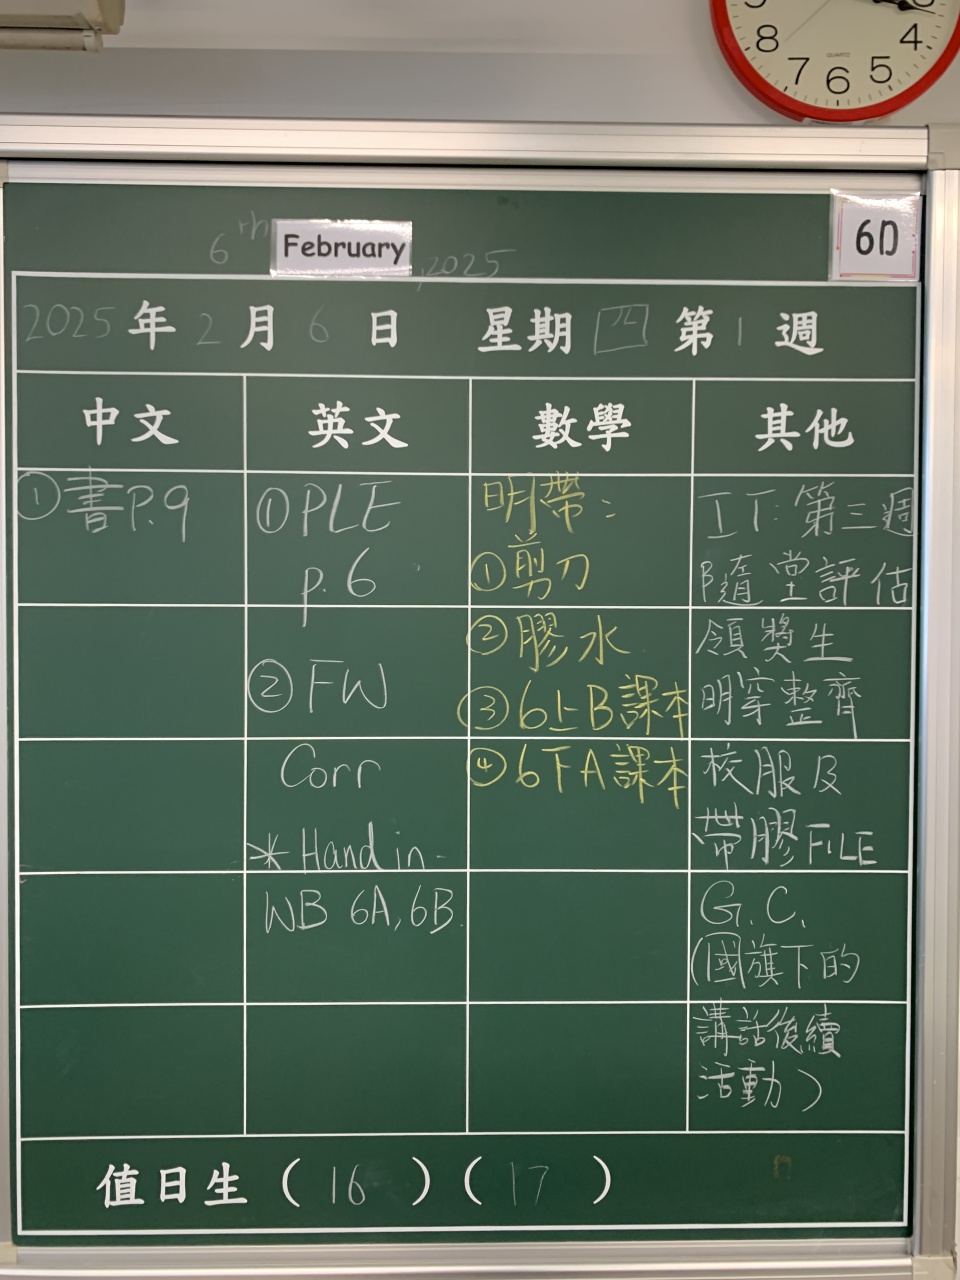 8
7
6
5
4
6th February, 2025
6D
2025年2月6日 星期四 第1週
中文
英文
數學
其他
①書P.9
①PLE
p.6
②FW
Corr
*Hand in
WB 6A,6B.
明帶：
①剪刀
②膠水
③6上B課本
④6下A課本
IT：第三週
隨堂評估
領獎生
明穿整齊
校服及
帶膠FILE
G.C.
(國旗下的
講話後續
活動)
值日生（16）（17）